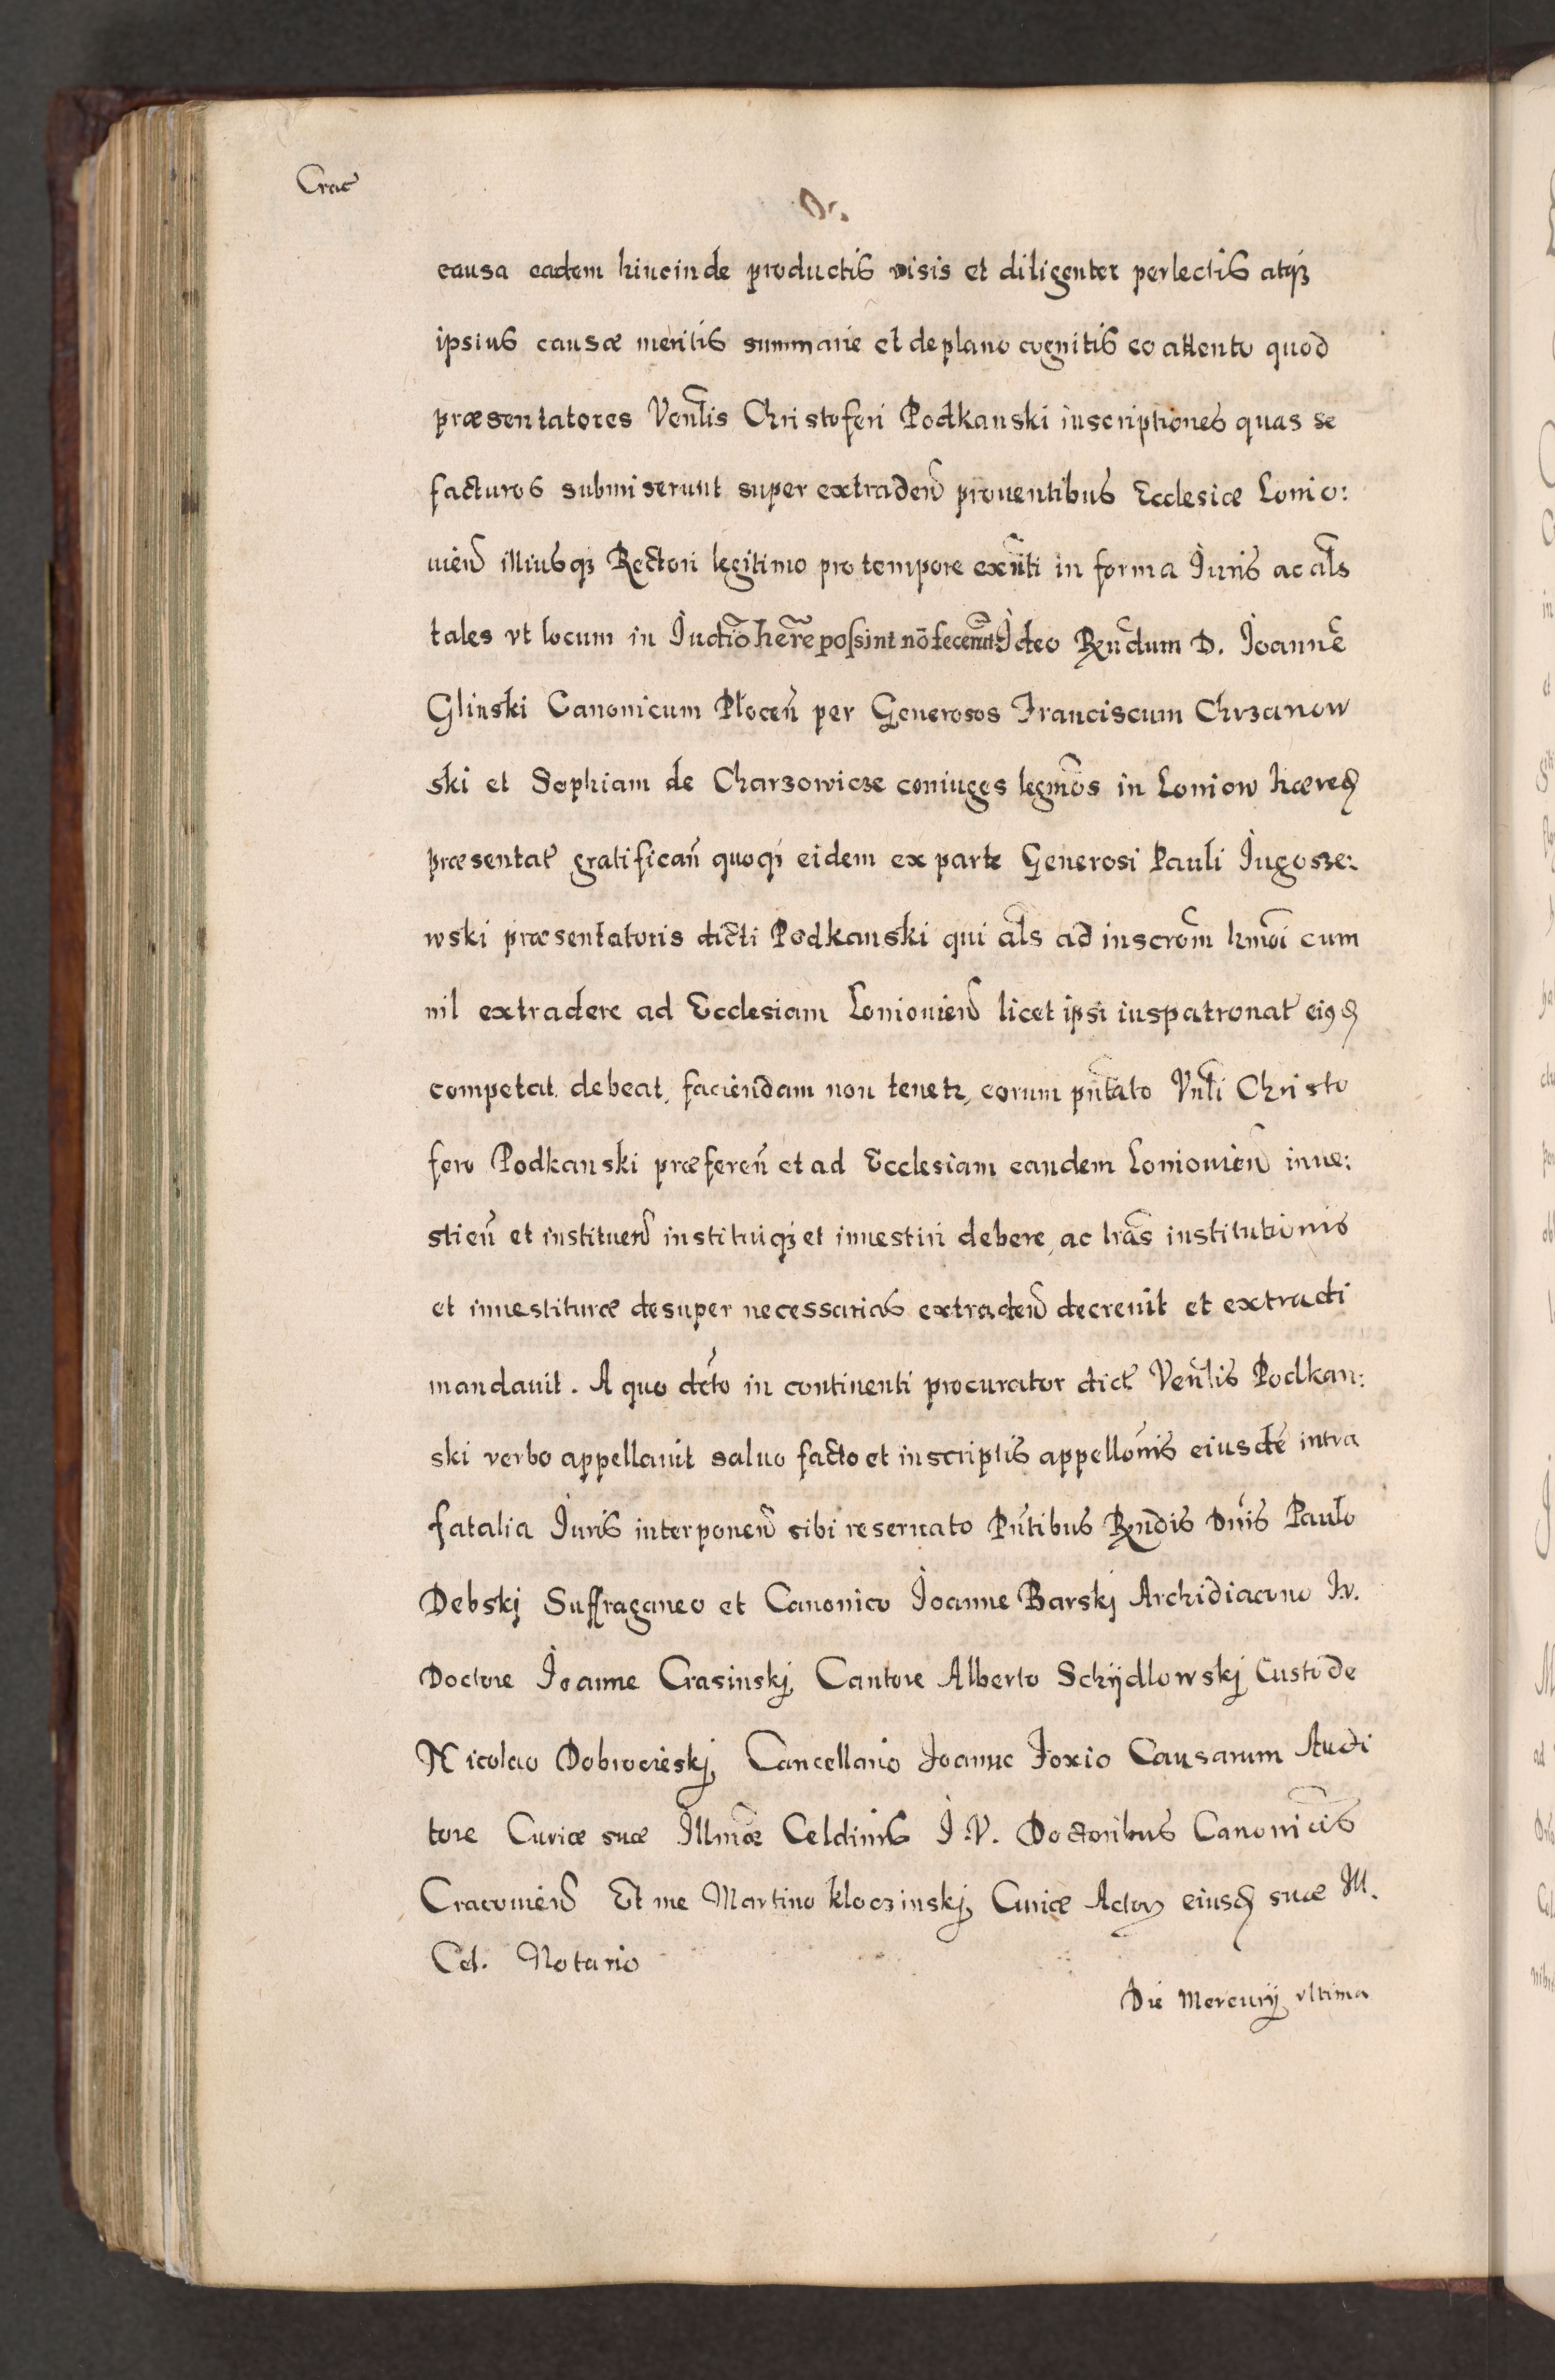 Crac̃
causa eadem hincinde productis visis et diligenter perlectis atq₃
ipsius causæ meritis summarie et de plano cognitis eo attento quod
præsentatores Venl̃is Christoferi Podkanski inscriptiones quas se
facturos submiserunt super extradeñ prouentibus Ecclesiæ Lonio:
uieñ illiusq₃ Rectori legitimo pro tempore exñti in forma Iuris ac al̃s
tales vt locum in Iuditio hẽre possint nõ fecerunt Ideo Rndum D. Ioannẽ
Glinski Canonicum Płoceñ per Generosos Franciscum Chrzanow
ski et Sophiam de Charzowicze coniuges legm̃os in Loniow hæred
præsentat̃ gratificañ quoq₃ eidem ex parte Generosi Pauli Iugosze:
wski præsentatoris dicti Podkanski qui al̃s ad inscrom̃ hm̃oi cum
nil extradere ad Ecclesiam Loniouieñ licet ipsi iuspatronat̃ eiusd
competat debeat, faciendam non tenetr, eorum pñtato Vnl̃i Christo
fero Podkanski præfereñ et ad Ecclesiam eandem Loniouieñ inue:
stieñ et institueñ instituiq₃ et inuestiri debere, ac lrãs institutionis
et inuestituræ desuper necessarias extradeñ decreuit et extradi
mandauit. A quo dc̃to in continenti procurator dict̃ Venl̃is Podkan:
ski verbo appellauit saluo facto et inscriptis appellonis̃ eiusdẽ intra
fatalia Iuris interponeñ sibi reseruato Pñtibus Rndis Dnis̃ Paulo
Debskj Suffraganeo et Canonico Ioanne Barskj Archidiacono I.v.
Doctore Ioanne Crasinskj, Cantore Alberto Schÿdlowskj Custode
Nicolao Dobrocieskj, Cancellario Ioanne Foxio Causarum Audi
tore Curiæ suæ Illmæ̃ Celdinis I.V. Doctoribus Canonicis
Cracouieñ Et me Martino Kloczinskj, Curiæ Actor eiusd suæ Ill.
Cel. Notario
Die Mercurij vltima